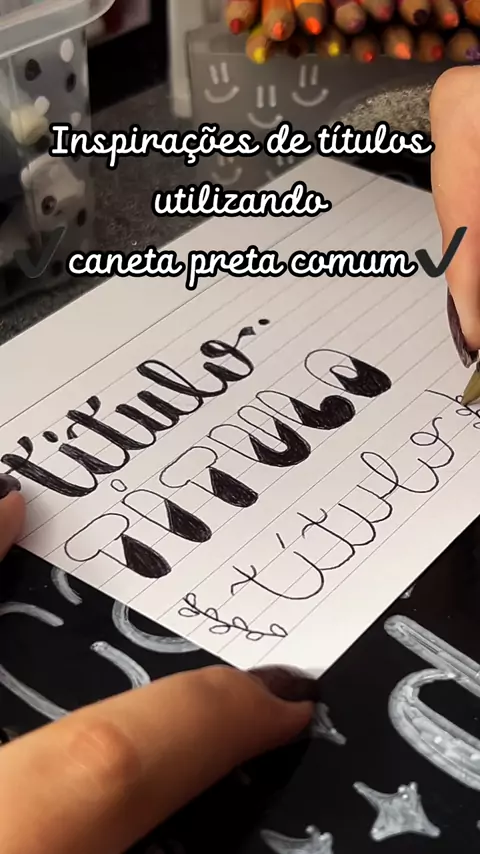 Inspirações de títulos
utilizando
✔ caneta preta comum ✔
título
TÍTULO
título